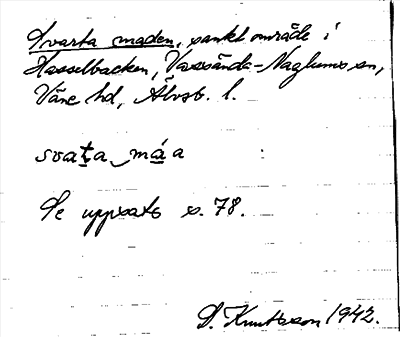 Svarta maden, sankt område i
Hasselbacken, Vassända-Naglums sn,
Väne hd, Älvsb. l.
svaṯa má̱a
Se uppsats s. 78.
D. Knutsson 1942.